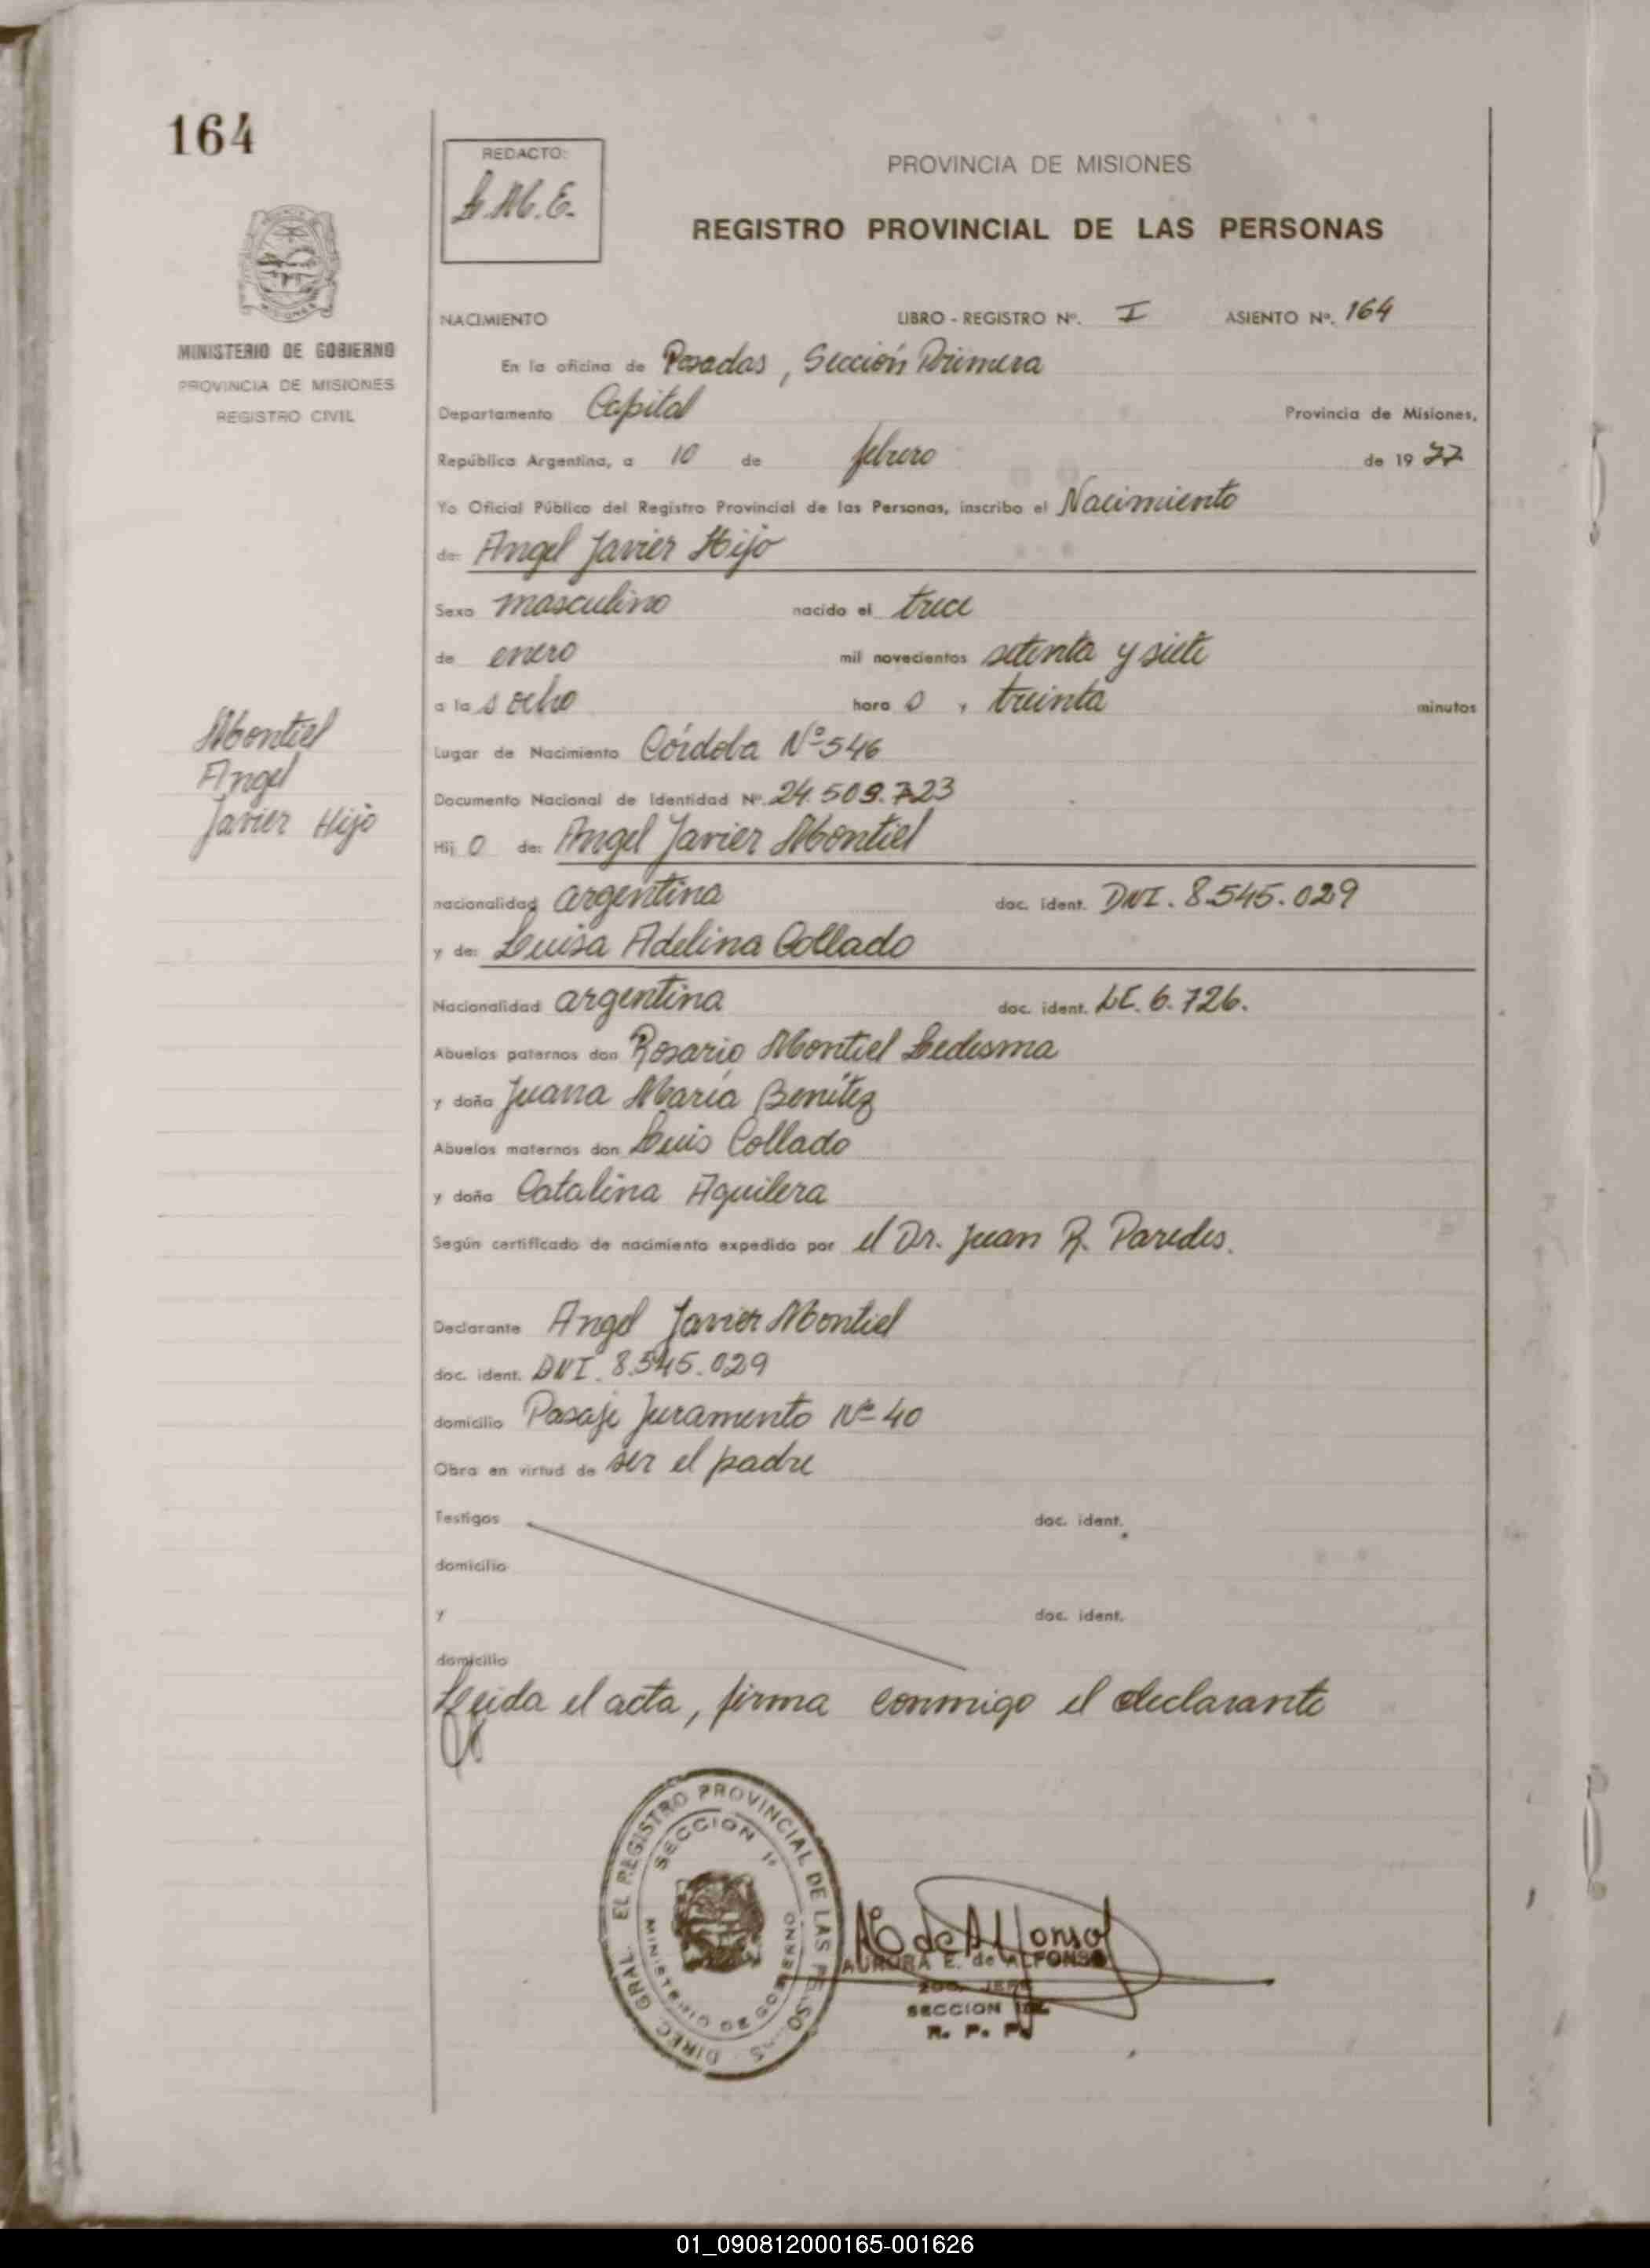 164
REDACTO:
L.M.E.
PROVINCIA DE MISIONES
REGISTRO PROVINCIAL DE LAS PERSONAS
MINISTERIO DE GOBIERNO
PROVINCIA DE MISIONES
REGISTRO CIVIL
NACIMIENTO LIBRO - REGISTRO Nº. I ASIENTO Nº. 164
En la oficina de Posadas, Sección Primera
Departamento Capital Provincia de Misiones,
República Argentina, a 10 de febrero de 1977
Yo Oficial Público del Registro Provincial de las Personas, inscribo el Nacimiento
de: Angel Javier Hijo
Sexo masculino nacido el trece
de enero mil novecientos setenta y siete
a la s ocho hora s y treinta minutos
Montiel
Angel
Javier Hijo
Lugar de Nacimiento Córdoba Nº 546
Documento Nacional de Identidad Nº. 24.509.723
Hij o de: Angel Javier Montiel
nacionalidad argentina doc. ident. DNI. 8.545.029
y de: Luisa Adelina Collado
Nacionalidad argentina doc. ident. LC. 6.726.
Abuelos paternos don Rosario Montiel Ledesma
y doña Juana María Benítez
Abuelos maternos don Luis Collado
y doña Catalina Aguilera
Según certificado de nacimiento expedido por el Dr. Juan R. Paredes.
Declarante Angel Javier Montiel
doc. ident. DNI. 8.545.029
domicilio Pasaje Juramento Nº 40
Obra en virtud de ser el padre
Testigos doc. ident.
domicilio
y doc. ident.
domicilio
Leída el acta, firma conmigo el declarante
DIREC. GRAL. EL REGISTRO PROVINCIAL DE LAS PERSONAS
SECCION 1º
MINISTERIO DE GOBIERNO
AURORA E. de ALFONSO
JEFE
SECCION
R. P. P.
01_090812000165-001626